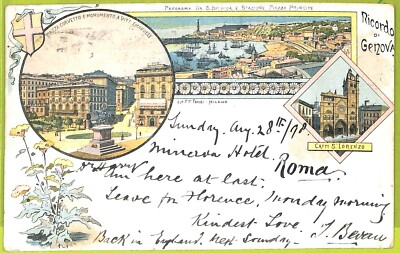 PANORAMA DA S. BENIGNO E STAZIONE PIAZZA PRINCIPE
PIAZZA CORVETTO E MONUMENTO A VITT. EMANUELE
Ricordo
di
GENOVA
MILANO
CATT. S. LORENZO
Sunday, Aug. 28th/98
Minerva Hotel.
Roma.
Dr Harry
Am here at last.
Leave for Florence, Monday morning
Kindest Love. J. Bevan
Back in England. next Sunday.